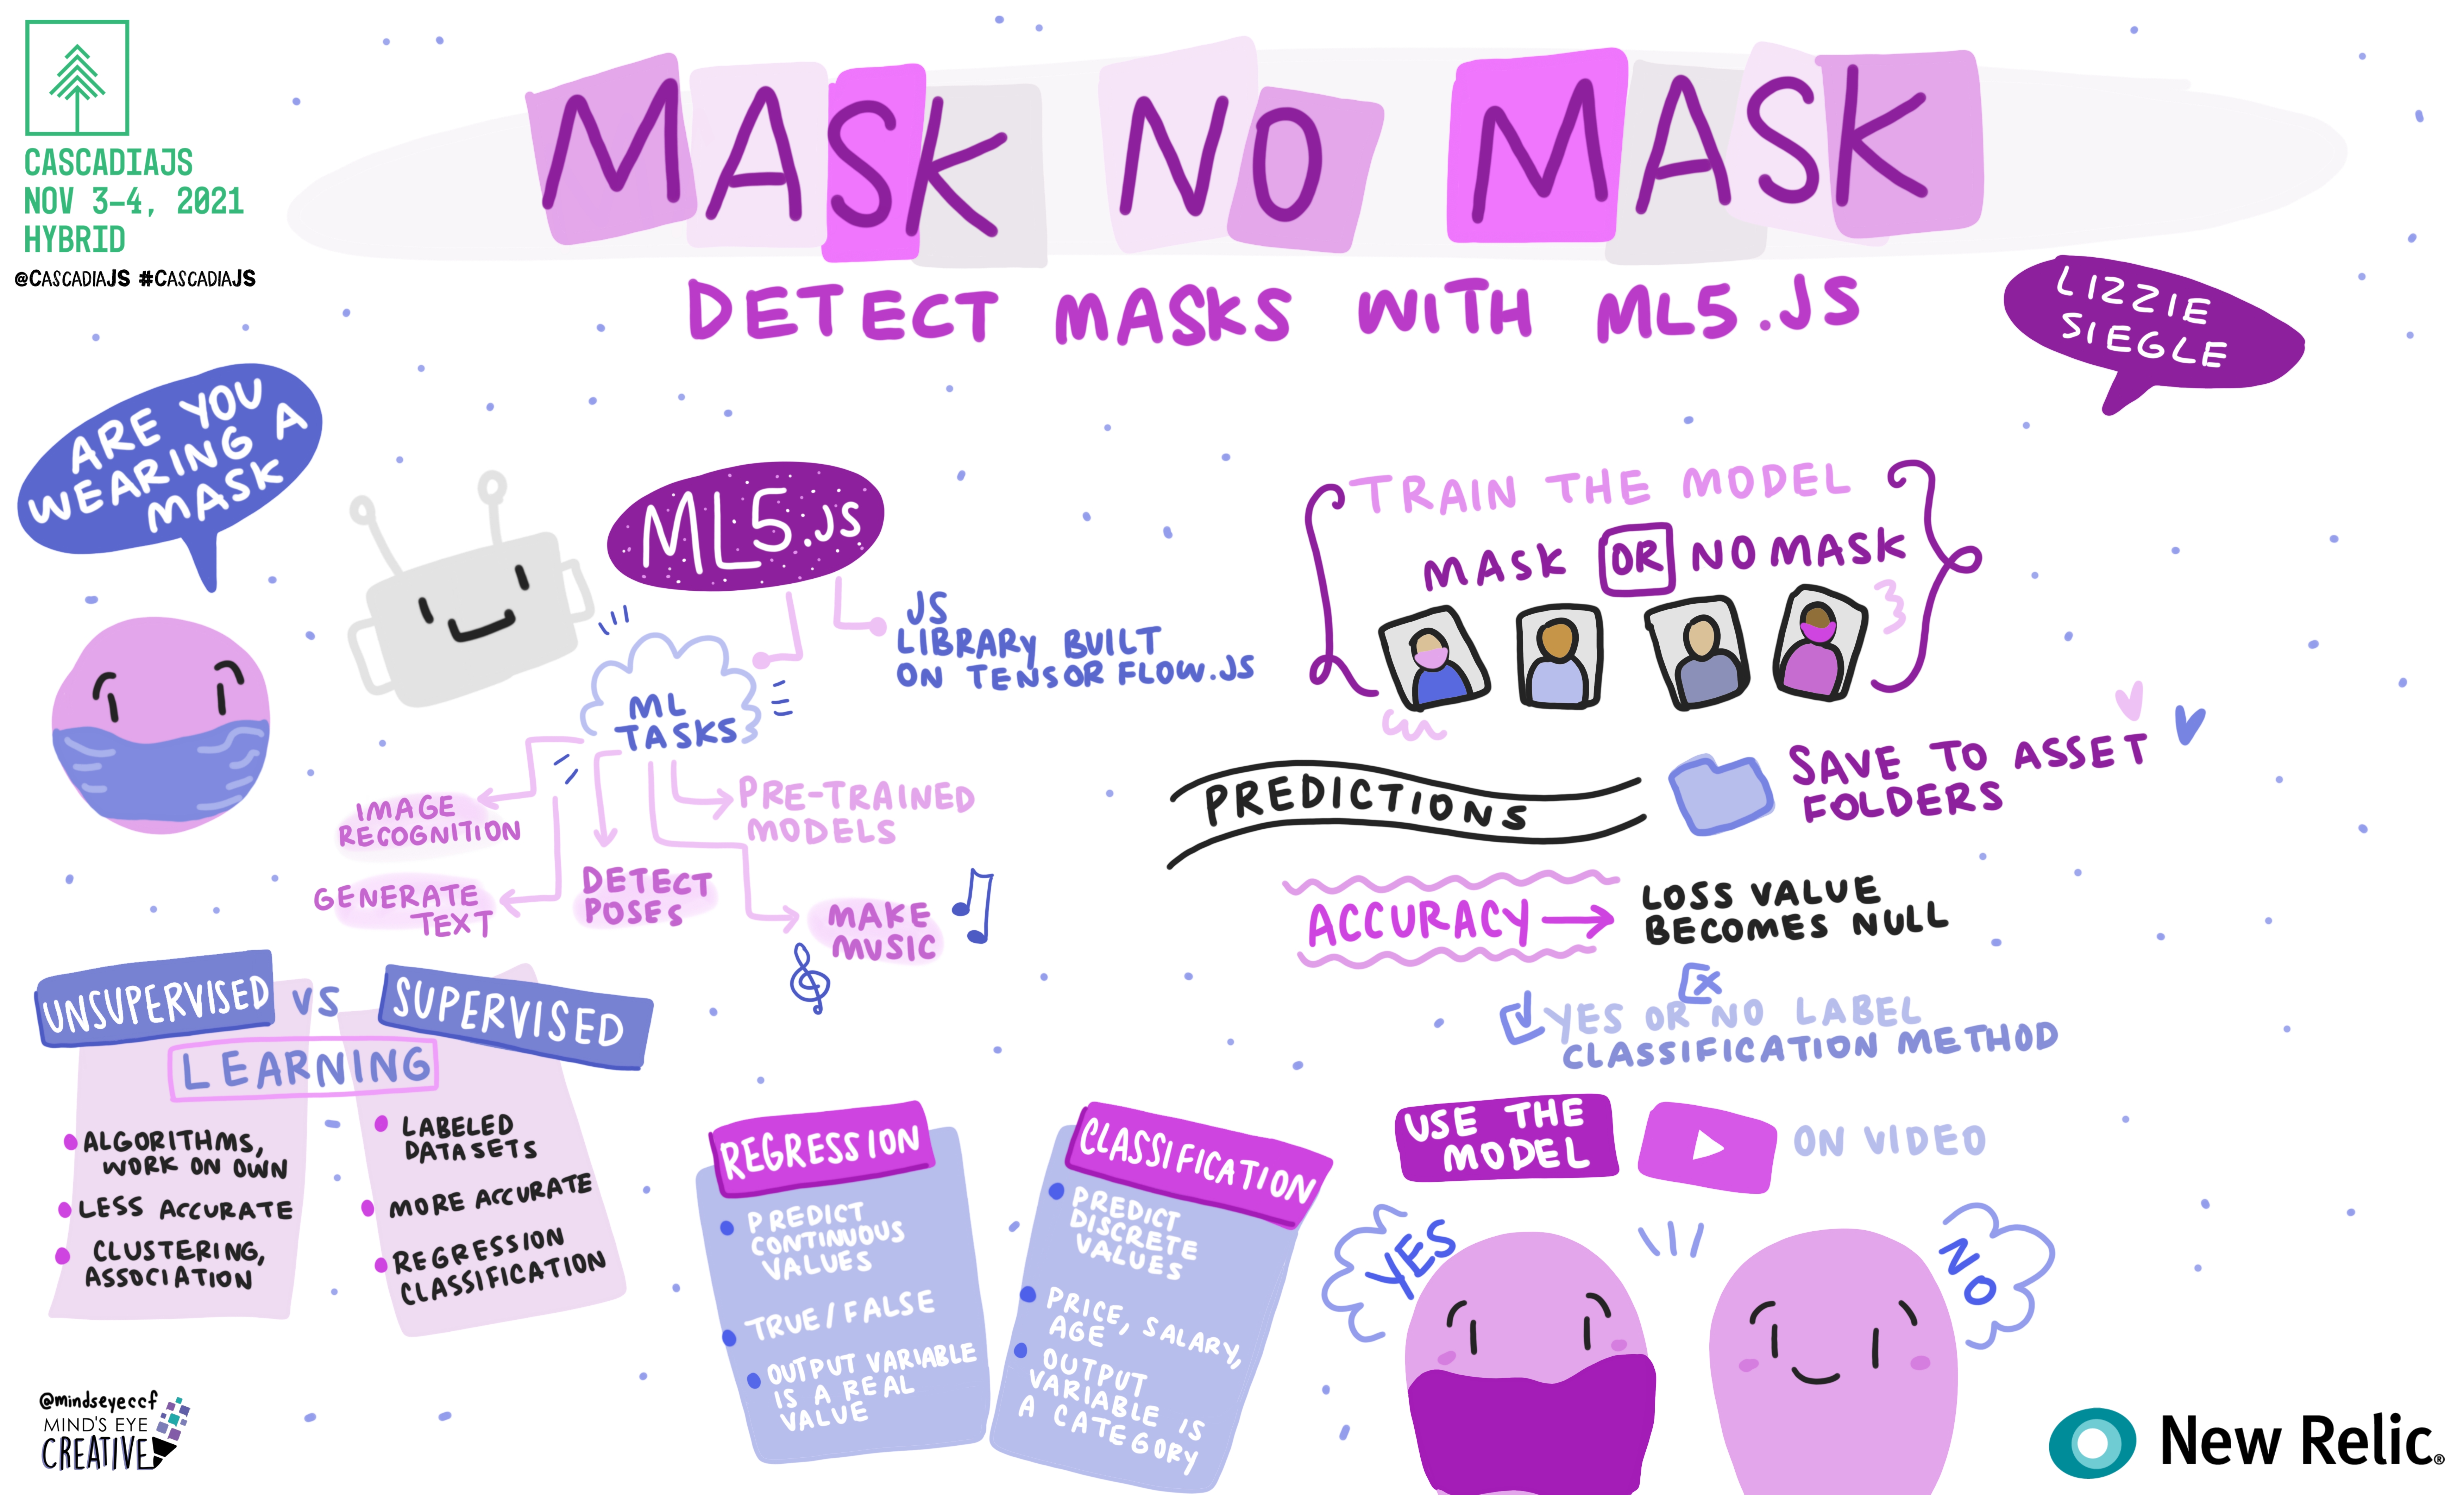 CASCADIAJS
NOV 3-4, 2021
HYBRID
@CASCADIAJS #CASCADIAJS
MASK NO MASK
DETECT MASKS WITH ML5.JS
LIZZIE
SIEGLE
ARE YOU
WEARING A
MASK
ML5.JS
JS
LIBRARY BUILT
ON TENSOR FLOW.JS
ML
TASKS
IMAGE
RECOGNITION
GENERATE
TEXT
DETECT
POSES
PRE-TRAINED
MODELS
MAKE
MUSIC
TRAIN THE MODEL
MASK OR NO MASK
PREDICTIONS
SAVE TO ASSET
FOLDERS
ACCURACY
LOSS VALUE
BECOMES NULL
YES OR NO LABEL
CLASSIFICATION METHOD
UNSUPERVISED VS SUPERVISED
LEARNING
ALGORITHMS,
WORK ON OWN
LESS ACCURATE
CLUSTERING,
ASSOCIATION
LABELED
DATASETS
MORE ACCURATE
REGRESSION
CLASSIFICATION
REGRESSION
PREDICT
CONTINUOUS
VALUES
TRUE/FALSE
OUTPUT VARIABLE
IS A REAL
VALUE
CLASSIFICATION
PREDICT
DISCRETE
VALUES
PRICE, SALARY,
AGE
OUTPUT
VARIABLE IS
A CATEGORY
USE THE
MODEL
ON VIDEO
YES
NO
@mindseyeccf
MIND'S EYE
CREATIVE
New Relic®